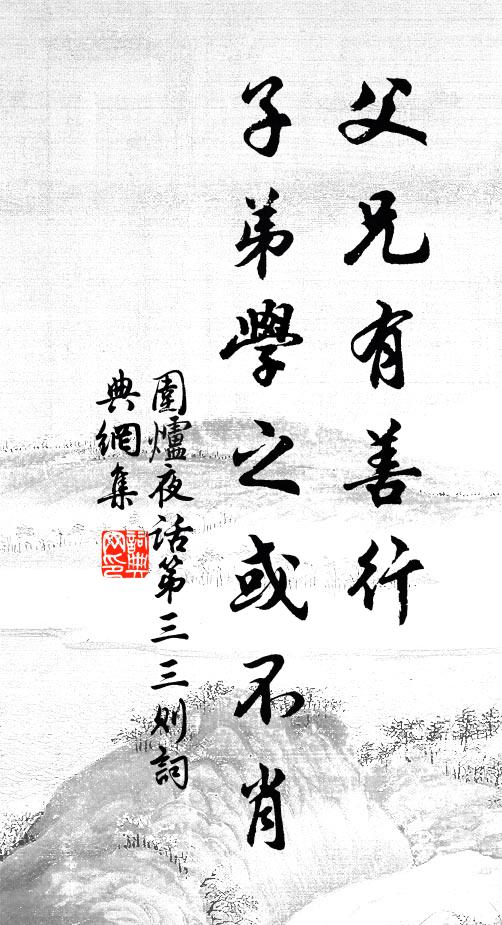 父兄有善行
子弟學之或不肖
圍爐夜话第三三则詞
典網集
詞典
网印